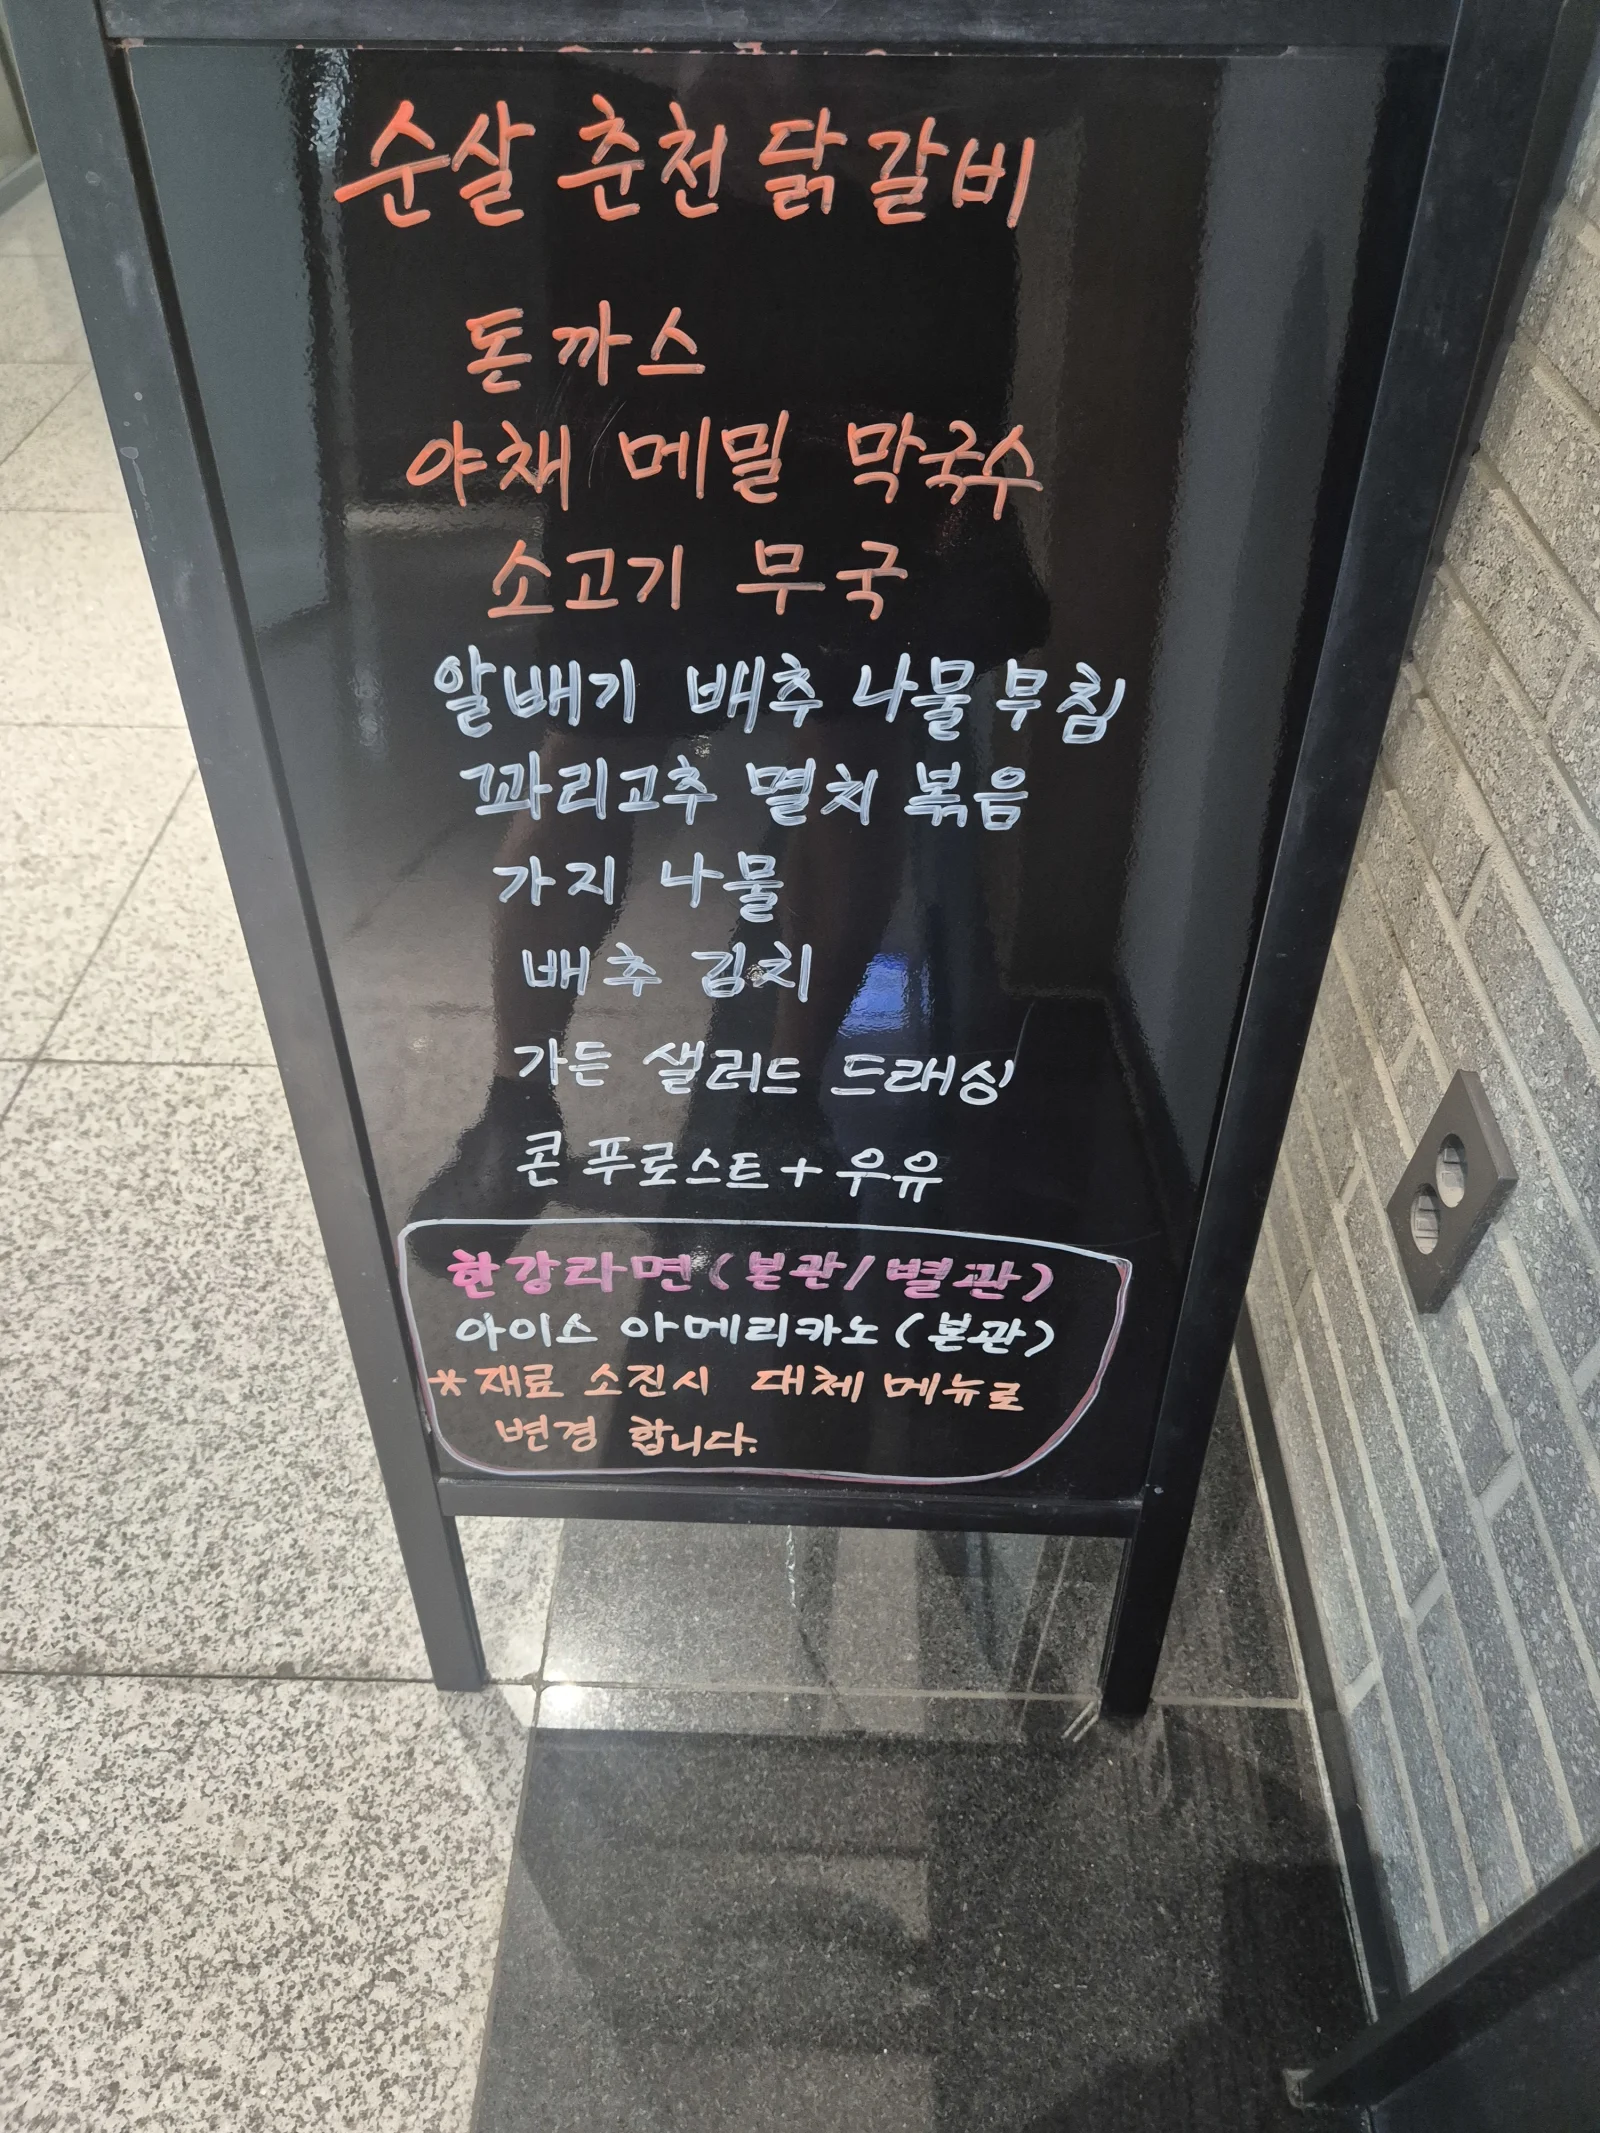 순살 춘천 닭갈비
돈까스
야채 메밀 막국수
소고기 무국
알배기 배추 나물무침
꽈리고추 멸치 볶음
가지 나물
배추 김치
가든 샐러드 드래싱
콘 푸로스트 + 우유
한강라면 (본관/별관)
아이스 아메리카노 (본관)
* 재료 소진시 대체 메뉴로
변경 합니다.